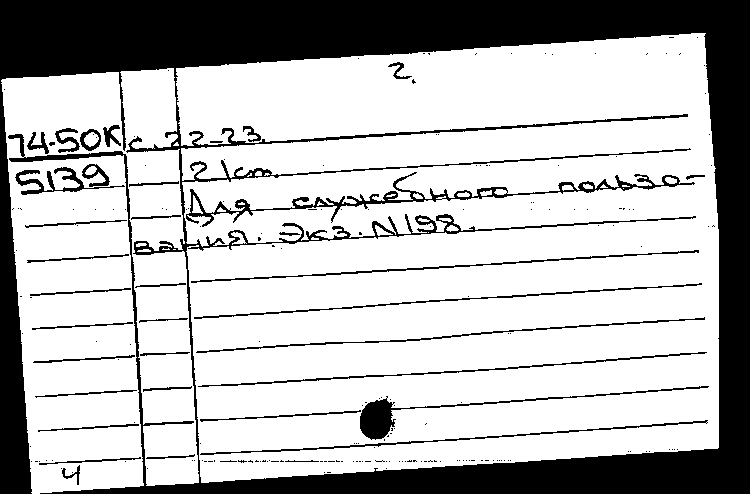 2.
74-50К с. 22-23.
5139 21cm.
Для служебного пользо-
вания. Экз. N198.
ч